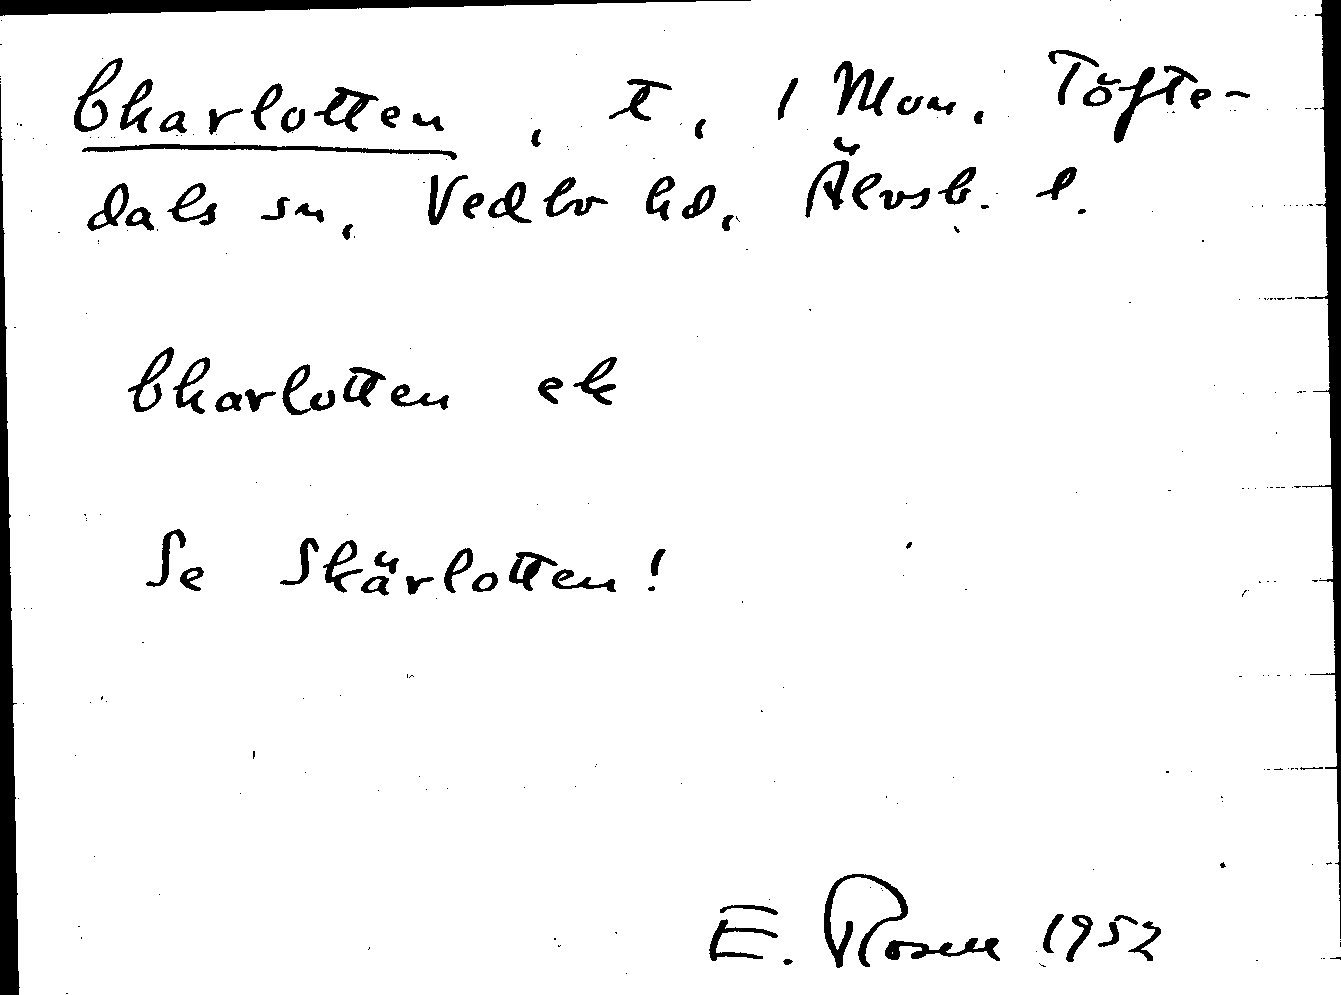 Charlotten, t, 1 Mon. Töfte-
dals sn, Vedbo hd, Älvsb. l.
Charlotten ek
Se Skärlotten!
E. Rosell 1952